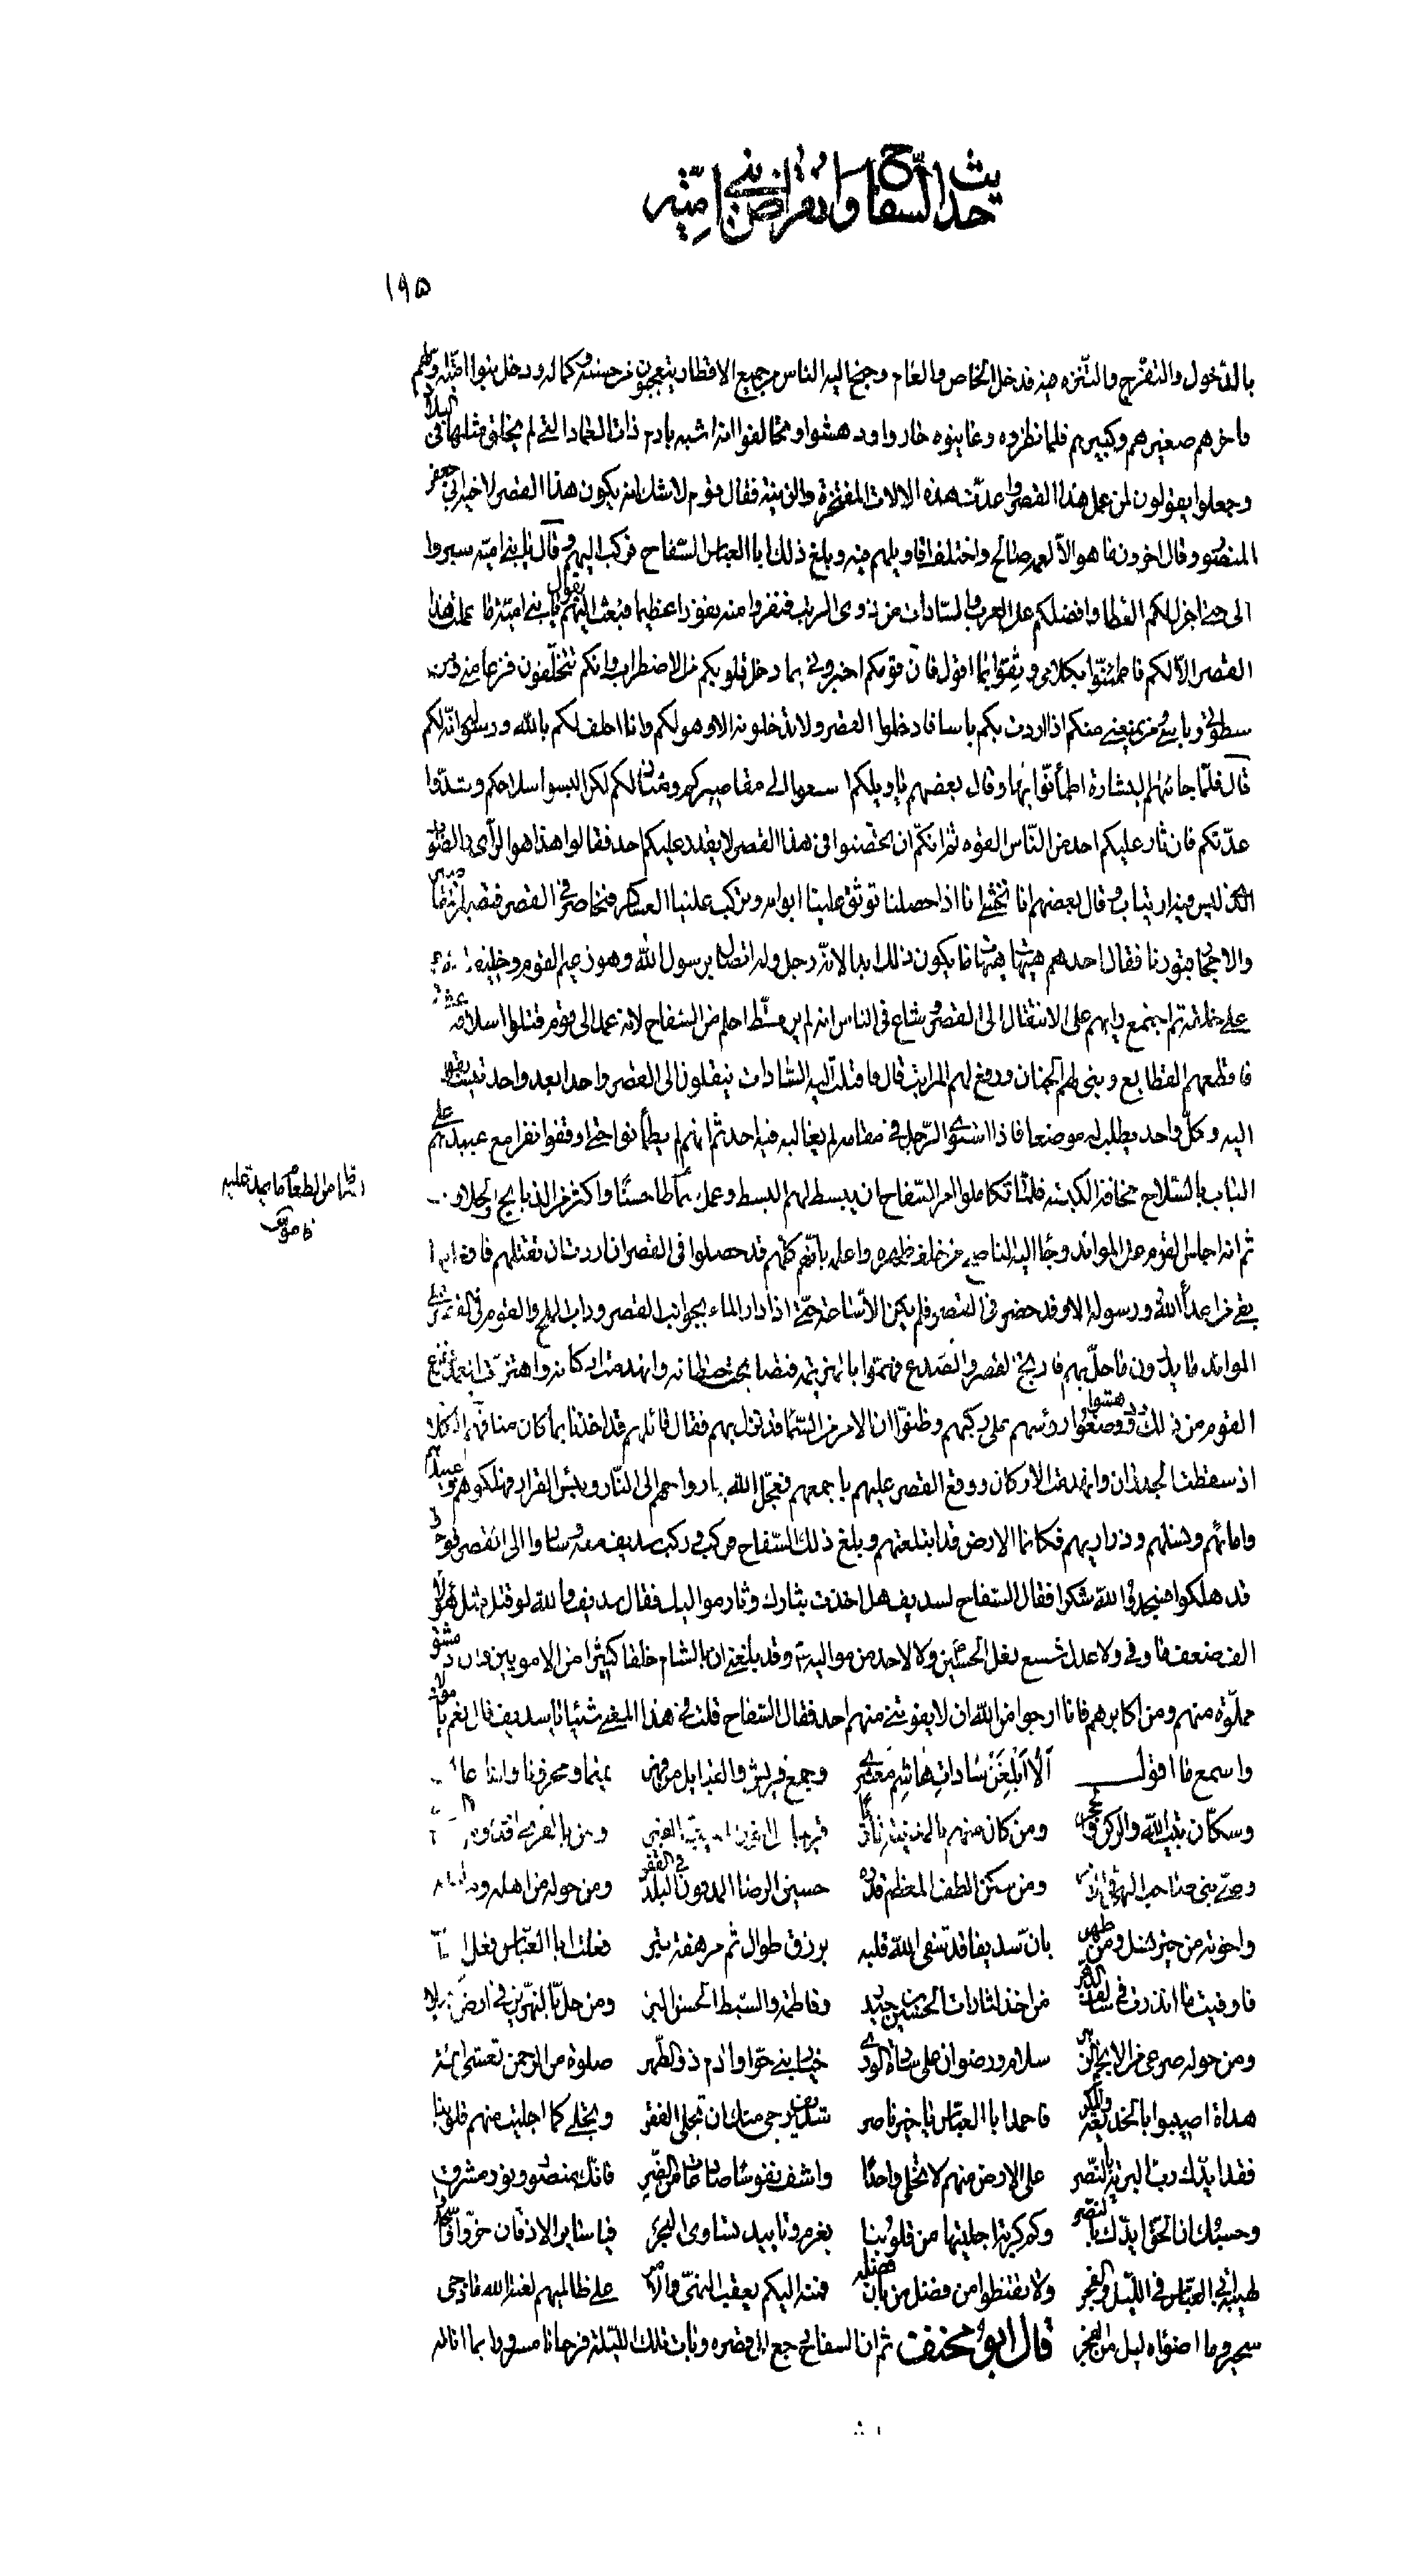 حديث السفاح وانقراض بني امية
١٩٥
بالدخول والتفرج والتنزه فيه فدخل الخاص والعام وجنح اليه الناس من جميع الاقطار يتعجبون من حسنه وكماله ودخل بنوا امية كلهم
عاخرهم صغيرهم وكبيرهم فلما نظروه وعاينوه حاروا ودهشوا وتحالفوا انه اشبه بارم ذات العماد التي لم يخلق مثلها في البلاد
وجعلوا يقولون لمن عمل هذا القصر واعدت هذه الالات المفتخرة والزينة فقال قوم لاشك انه يكون هذا القصر لاخيه ابي جعفر
المنصور وقال اخرون ما هو الا لعمه صالح واختلف اقاويلهم فيه وبلغ ذلك ابا العباس السفاح فركب اليهم وقال يا بني امية سيروا
الي حتى اجزل لكم العطا وافضلكم على العرب والسادات من ذوى الرتب فنفروا منه نفورا عظيما فبعث اليهم يقول يا بني امية ما عملت هذا
القصر الا لكم فاطمئنوا بكلامي وثقوا بما اقول فان قومكم اخبروني بما دخل قلوبكم من الاضطراب وانكم تتخلفون فزعا مني ومن
سطوتي وباسي ومن يمنعني منكم اذا اردت بكم باسا فادخلوا القصر ولا تدخلونه الا وهو لكم وانا احلف لكم بالله ورسوله انه لكم
قال فلما جائتهم البشارة اطمأنوا بها وقال بعضهم يا ويلكم اسعوا الى مقاصيركم ومنازلكم لكن البسوا سلاحكم وشدوا
عدتكم فان ثار عليكم احد من الناس القوه ثم انكم ان تحصنوا في هذا القصر لا يقدر عليكم احد فقالوا هذا هو الرأى والصواب
الذي ليس فيه ارتياب وقال بعضهم انا نخشى انا اذا حصلنا توثق علينا ابوابه وتركب علينا العساكر فنحاصر في القصر فنصير
فقال احدهم هيهات هيهات ما يكون ذلك ابدا لانه رجل وله اتصال برسول الله وهو زعيم القوم وخليفة
على خلافته ثم اجتمع رايهم على الانتقال الى القصر وشاع في الناس انه لم ير قط احلم من السفاح لانه عمد الى قوم قتلوا اسلافه
فاقطعهم القطايع وبنى لهم الجنان ورفع لهم المراتب قال فاقبلت اليه السادات ينقلون الى القصر واحدا بعد واحد
اليه وكل واحد يطلب له موضعا فاذا استوى الرجل في مقامه لم يغالبه فيه احد ثم انهم لم يطمأنوا حتى اوقفوا نفرا مع عبيدهم على
الباب بالسلاح مخافة الكبسه فلما تكاملوا امر السفاح ان يبسط لهم البسط وعمل سماطا حسنا واكثر من الذبايح
من الطعام ما يجد عليه
ثم انه اجلس القوم على الموائد وجاء اليه الناصح من خلف ظهره واعلمه بانهم كلهم قد حصلوا في القصر ان اردت ان تقتلهم
يبق من اعداء الله ورسوله الا وقد حضر في القصر فلم يكن الا ساعة حتى اذا دار الماء بجوانب القصر وذاب الملح والقوم في القصر على
الموائد ما يدرون ما حل بهم فارتج القصر وانصدع فهموا بالهزيمة فتصايحت حيطانه وانهدمت اركانه واهتزت
القوم من ذلك ودهشوا ووضعوا رؤسهم على ركبهم وظنوا ان الامر من السماء قد نزل بهم فقال قائلهم قد اخذنا بما كان منا
اذ سقطت الجدران وانهدمت الاركان ووقع القصر عليهم باجمعهم فعجل الله بارواحهم الى النار وبئس القرار فهلكوا هم وعبيدهم
وامائهم ونسلهم وذراريهم فكانما الارض قد ابتلعتهم وبلغ ذلك السفاح فركب وركب سديف معه وساروا الى القصر فوجد
قد هلكوا فسجد والله شكرا فقال السفاح لسديف هل اخذت بثارك وثار مواليك فقال سديف والله لو قتل مثل هؤلاء
الف ضعف ما وفي ولا عدل شسع نعل الحسين ولا لاحد من مواليه وقد بلغني ان بالشام خلقا كثيرا من الامويين وان دمشق
مملوة منهم ومن اكابرهم فانا ارجوا من الله ان لا يفوتني منهم احد فقال السفاح قلت في هذا المعنى شيئا يا سديف قال نعم يا مولاى
واسمع ما اقول الا ابلغن سادات هاشم معشرى وجمع قريش والقبايل من فهر
وسكان بيت الله والركن ومن كان منهم بالمدينة
ومن سكن الطف المعظم قدره حسين الرضا المدفون في البلد القفر ومن حوله من اهله
واخوته من خير نسل ومن طهر بان سديفا قد شفى الله قلبه بزرق طوال ثم مرهفة بتر فعلت ابا العباس فعل
فاوفيت ما انذرت في سالف الدهر من اخذ لثارات الحسين وحيدر وفاطمة والسبط الحسن البر ومن حل بالنهرين في ارض كربلا
ومن حوله صرعى من الانجم الزهر سلام ورضوان على سادة الورى خيار بني حوا وادم ذو الطهر صلوة من الرحمن تغشى ائمة
هداة اصيبوا بالخديعة والمكر فاحمد ابا العباس يا خير ناصر سديف يرجى منك ان تجلي الفقر وتجلي كما اجليت منهم قلوبنا
فقد ايدك رب البرية بالنصر على الارض منهم لا تخلي واحدا واشف نفوسا صاليات من الضر فانك منصور ونورد مشرق
وحسبك ان الحق ايدك بالنصر وكم كربة اجليتها من قلوبنا بعزم وتاييد يساوى البحر فيا سايرا الاذقان خروا سجدا
لهيبة ابي العباس في الليل والفجر ولا تقنطوا من فضل من بان فضله فمنه اليكم يعقب النهي والامر على ظالميهم لعنة الله ما دجى
سحير وما اضواه ليل من الفجر قال ابو مخنف ثم ان السفاح رجع الى قصره وبات تلك الليلة فرحانا مسرورا بما اناله